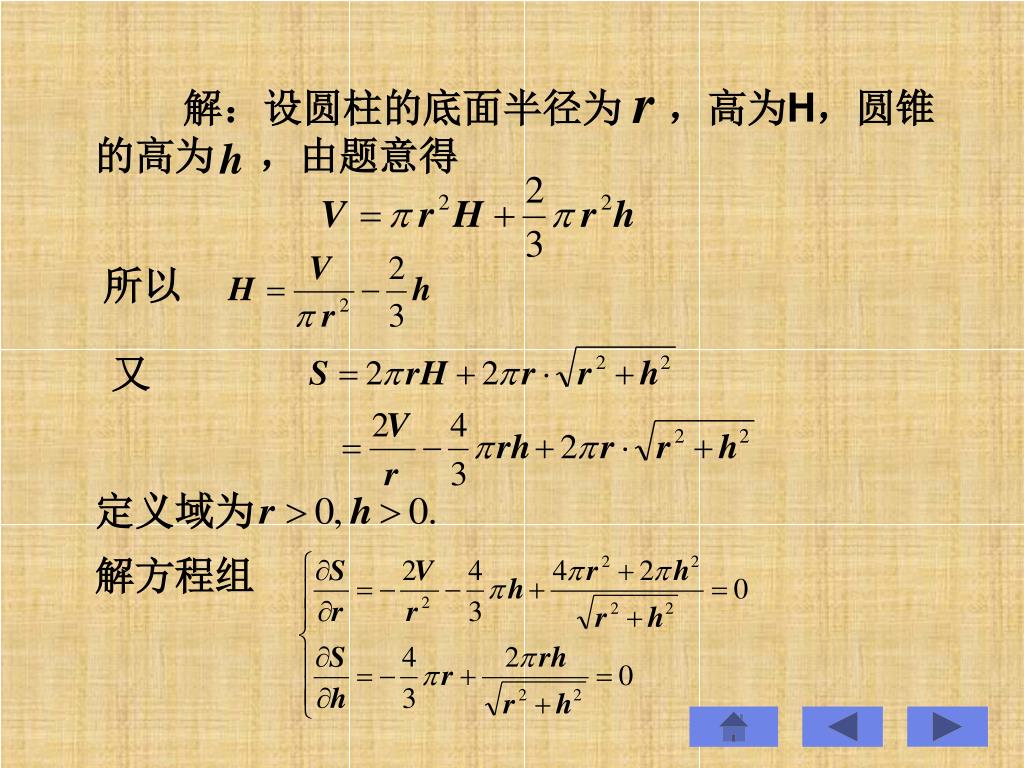 解：设圆柱的底面半径为 r ，高为H，圆锥
的高为 h ，由题意得
V = πr²H + \frac{2}{3}πr²h
所以 H = \frac{V}{πr²} − \frac{2}{3}h
又 S = 2πrH + 2πr·\sqrt{r² + h²}
= \frac{2V}{r} − \frac{4}{3}πrh + 2πr·\sqrt{r² + h²}
定义域为 r > 0, h > 0.
解方程组
\frac{∂S}{∂r} = −\frac{2V}{r²} − \frac{4}{3}πh + \frac{4πr² + 2πh²}{\sqrt{r² + h²}} = 0
\frac{∂S}{∂h} = −\frac{4}{3}πr + \frac{2πrh}{\sqrt{r² + h²}} = 0